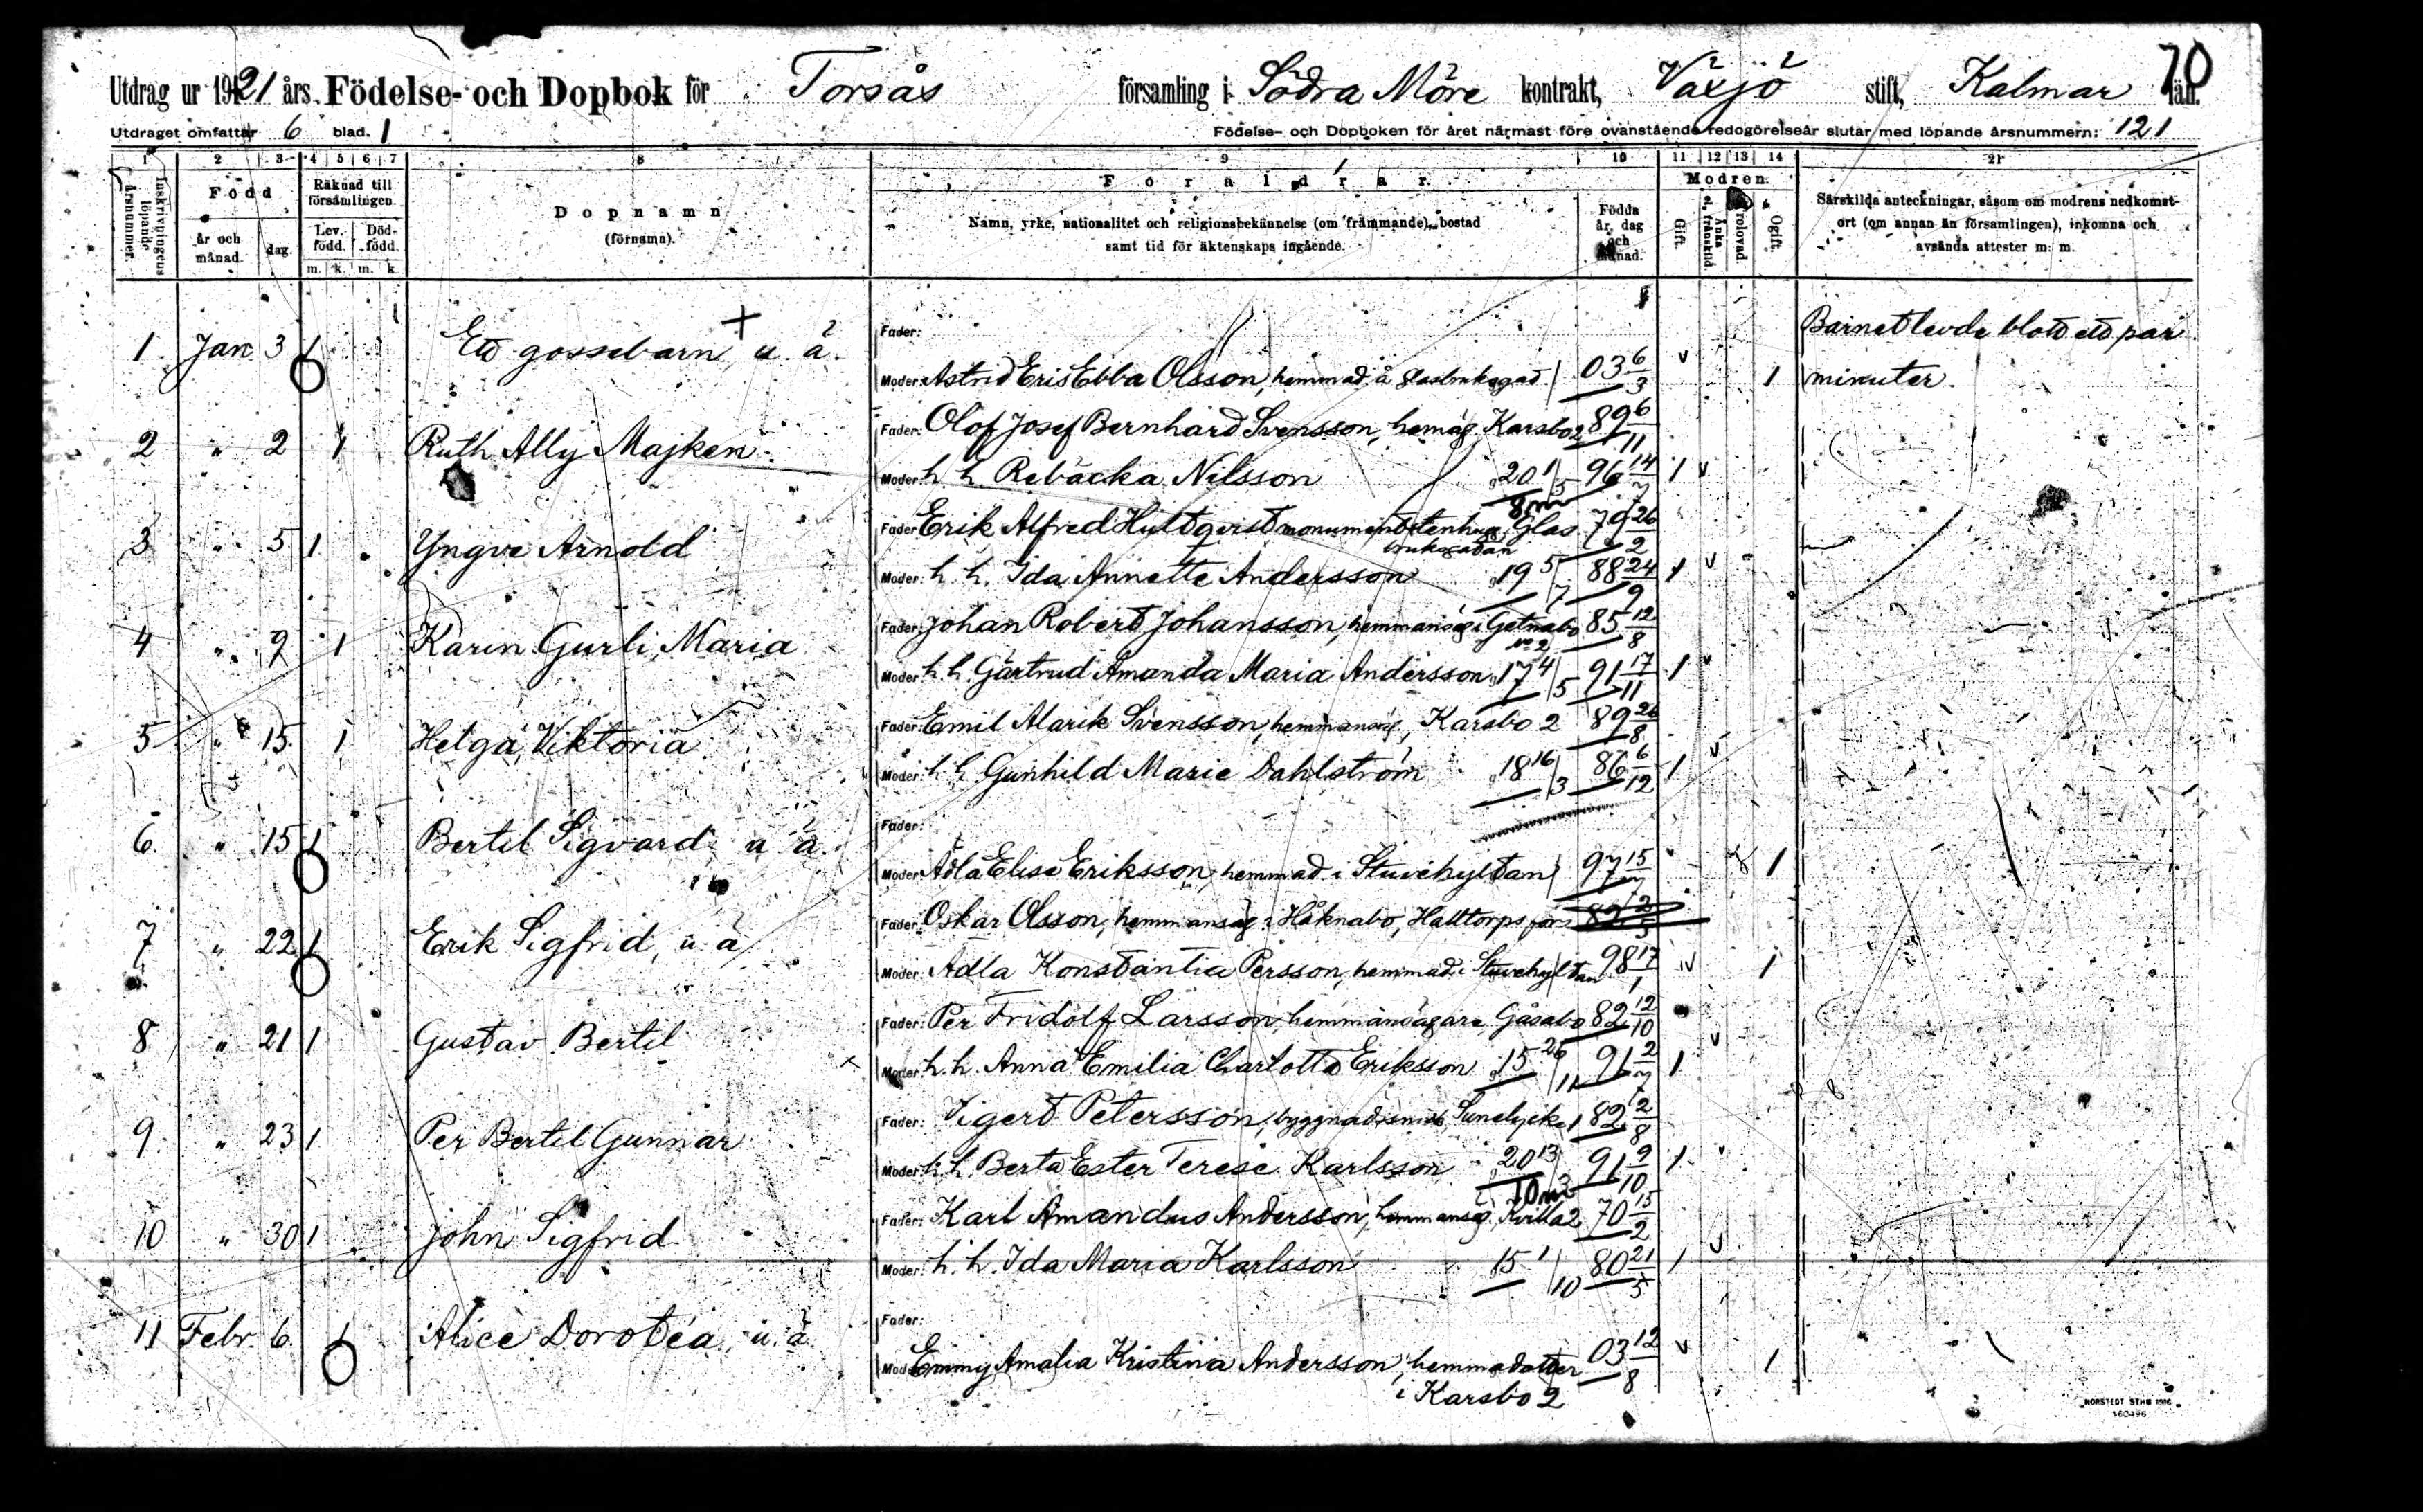 70
Utdrag ur 1921 års Födelse- och Dopbok för Torsås församling i Södra Möre kontrakt, Växjö stift, Kalmar län.
Utdraget omfattar 6 blad. 1 Födelse- och Dopboken för året närmast före ovanstående redogörelseår slutar med löpande årsnummern: 121
1 2 3 4 5 6 7 8 9 10 11 12 13 14 21
Inskrivningens löpande årsnummer.
Född
år och månad.
dag.
Räknad till församlingen.
Lev. född.
Död-född.
m. k. m. k.
Dopnamn
(förnamn).
Föräldrar.
Namn, yrke, nationalitet och religionsbekännelse (om främmande), bostad
samt tid för äktenskaps ingående.
Födda år, dag och månad.
Modren.
Gift.
Änka el. frånskild.
Trolovad.
Ogift.
Särskilda anteckningar, såsom om modrens nedkomst-
ort (om annan än församlingen), inkomna och
avsända attester m. m.
1 Jan. 3 1 Ett gossebarn u. ä. + Fader: Barnet levde blott ett par
Moder: Astrid Ebba Olsson, hemmad. å 03 6/3 1 minuter.
Fader: Olof Josef Bernhard Svensson, hemäg. Karsbo 2 89 6/11
2 " 2 1 Ruth Ally Majken
Moder: h. h. Rebäcka Nilsson 20 1/5 96 14/7 1
8 m
Fader: Erik Alfred Hultqvist, monumentstenhug. Glas 79 26/2
bruksgatan
3 " 5 1 Yngve Arnold
Moder: h. h. Ida Annette Andersson 19 5/7 88 24/9 1
Fader: Johan Robert Johansson, hemmansäg. i Getnabo 85 12/8
No 2
4 " 9 1 Karin Gurli Maria
Moder: h. h. Gärtrud Amanda Maria Andersson 17 4/5 91 17/11 1
Fader: Emil Alarik Svensson, hemmansäg., Karsbo 2 89 26/8
5 " 15 1 Helga Viktoria
Moder: h. h. Gunhild Marie Dahlström 18 16/3 86 6/12 1
6 " 15 1 Bertil Sigvard u. ä. Fader:
Moder: Adla Elise Eriksson, hemmad. i Stuvehyltan 97 15/7 1
Fader: Oskar Olsson, hemmansäg. i Håknabo, Halltorps förs.
7 " 22 1 Erik Sigfrid, u. ä.
Moder: Adla Konstantia Persson, hemmad. i Stuvehyltan 98 17/1 1
Fader: Per Fridolf Larsson, hemmansägare, Gåsabo 82 12/10
8 " 21 1 Gustav Bertil
Moder: h. h. Anna Emilia Charlotta Eriksson 15 26/11 91 2/7 1
Fader: Sigert Petersson, byggnadssnick. 82 2/8
9 " 23 1 Per Bertil Gunnar
Moder: h. h. Berta Ester Terese Karlsson 20 13/3 91 9/10 1
10 m
Fader: Karl Amandus Andersson, hemmansäg. Kvilla 2 70 15/2
10 " 30 1 John Sigfrid
Moder: h. h. Ida Maria Karlsson 15 1/10 80 21/5 1
11 Febr. 6 1 Alice Dorotea, u. ä. Fader:
Moder: Emmy Amalia Kristina Andersson, hemmadotter 03 12/8 1
i Karsbo 2
NORSTEDT STHB 1916
160496